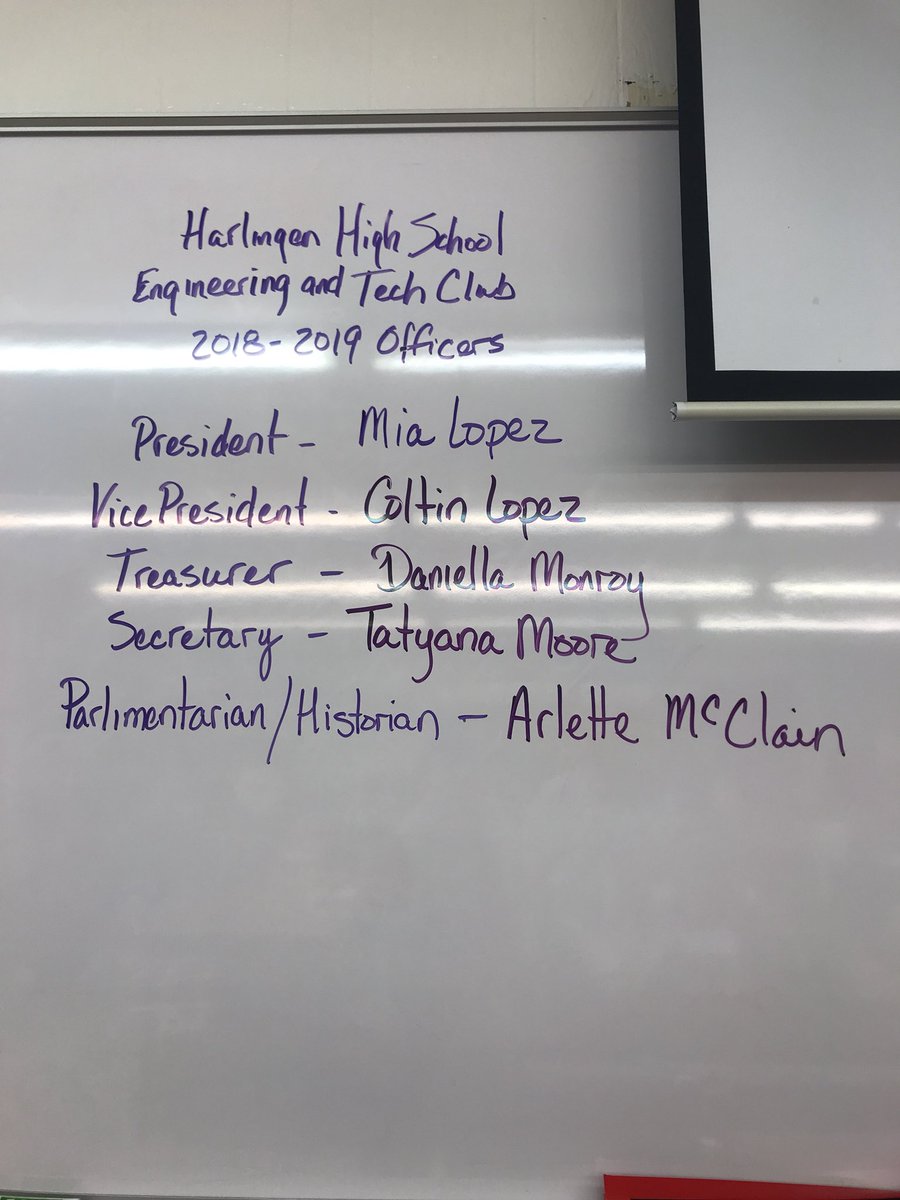 Harlingen High School
Engineering and Tech Club
2018-2019 Officers
President - Mia Lopez
Vice President - Coltin Lopez
Treasurer - Daniella Monroy
Secretary - Tatyana Moore
Parlimentarian/Historian - Arlette McClain